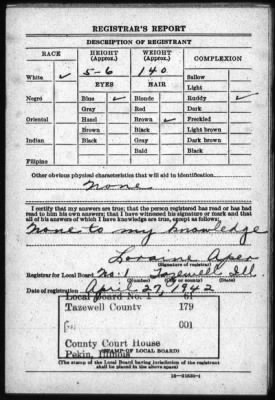 REGISTRAR'S REPORT
DESCRIPTION OF REGISTRANT
RACE HEIGHT (Approx.) WEIGHT (Approx.) COMPLEXION
White ✓ 5-6 140 Sallow
EYES HAIR Light
Negro Blue ✓ Blonde Ruddy ✓
Gray Red Dark
Oriental Hazel Brown ✓ Freckled
Brown Black Light brown
Indian Black Gray Dark brown
Bald Black
Filipino
Other obvious physical characteristics that will aid in identification
None
I certify that my answers are true; that the person registered has read or has had
read to him his own answers; that I have witnessed his signature or mark and that
all of his answers of which I have knowledge are true, except as follows:
None to my knowledge
Loraine Aper
(Signature of registrar)
Registrar for Local Board No. 1 Tazewell Ill.
(Number) (City or county) (State)
Date of registration April 27, 1942
Local Board No. 1 61
Tazewell County 179
001
County Court House
Pekin, Illinois
(STAMP OF LOCAL BOARD)
(The stamp of the Local Board having jurisdiction of the registrant
shall be placed in the above space)